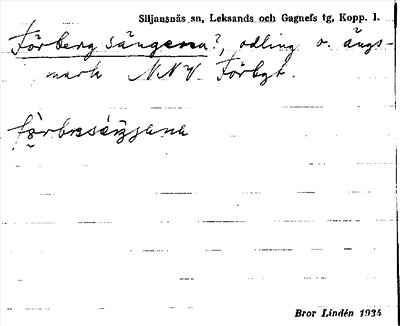 Siljansnäs sn, Leksands och Gagnefs tg, Kopp. l.
Förbergsängarna?, odling o. ängs-
mark NNV Förbgt.
Bror Lindén 1934